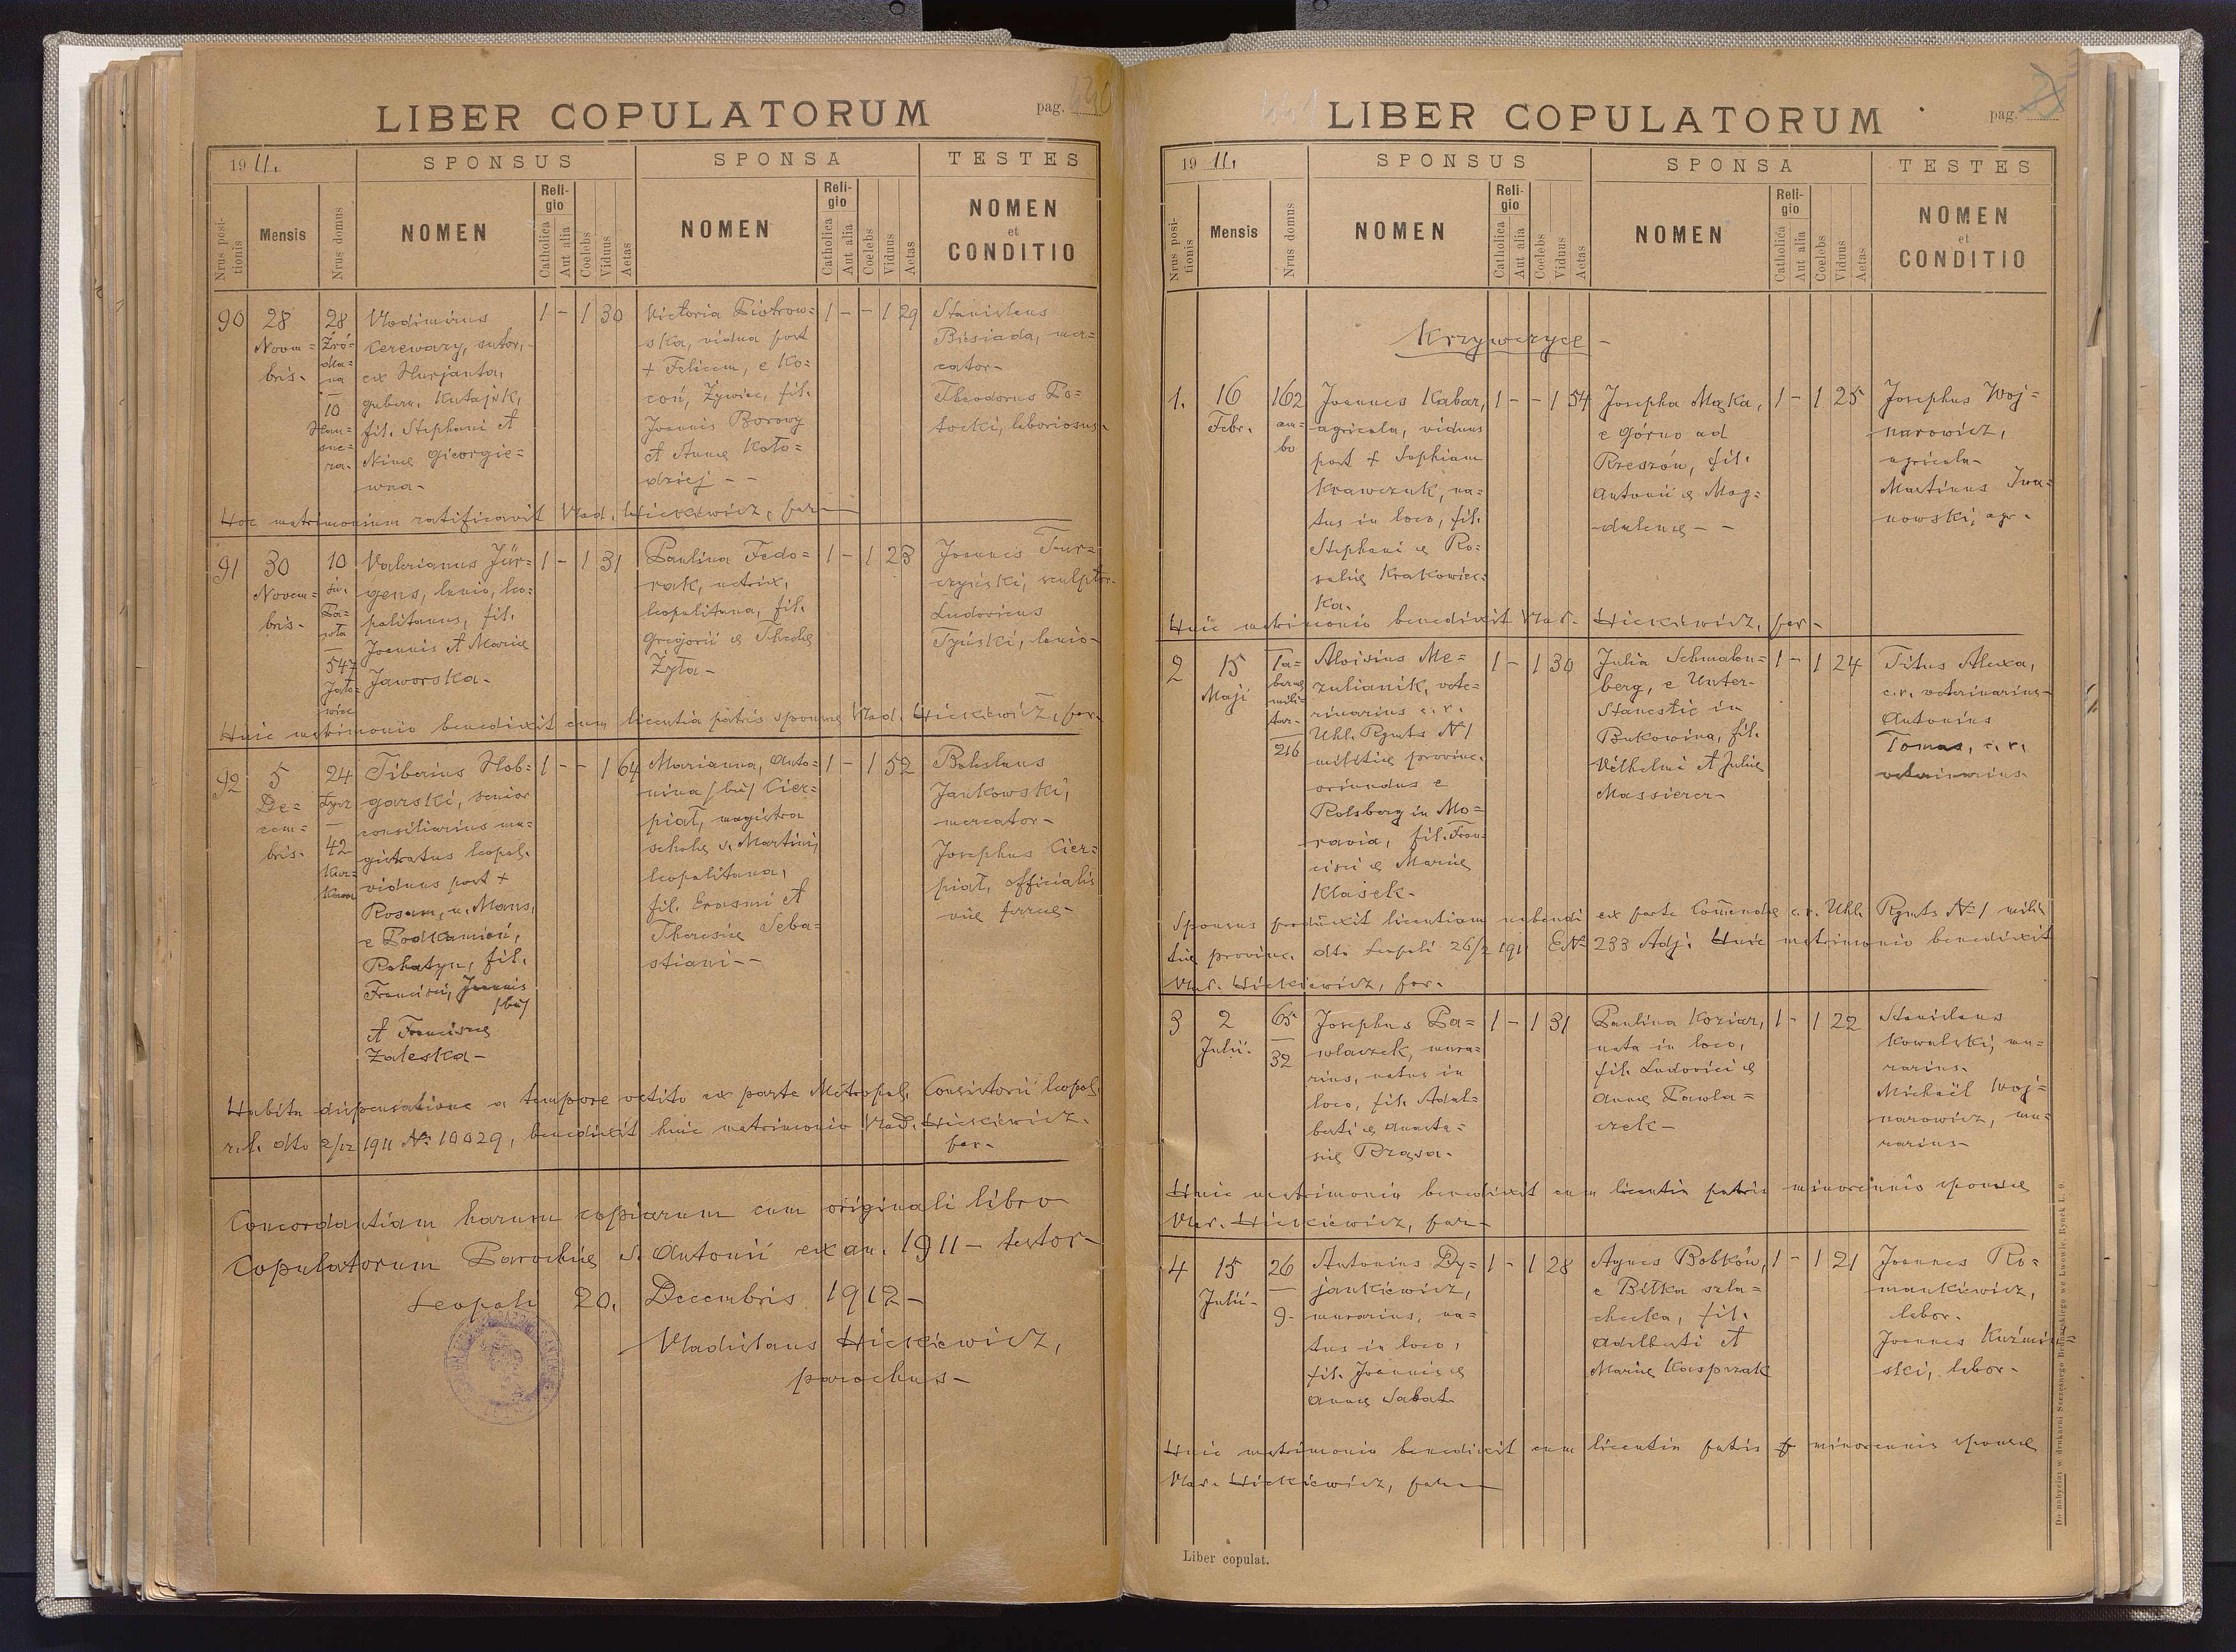 LIBER COPULATORUM
pag. 440
1911.
SPONSUS
SPONSA
TESTES
Nrus positionis
Mensis
Nrus domus
NOMEN
Religio
Catholica
Aut alia
Coelebs
Viduus
Aetas
NOMEN
Religio
Catholica
Aut alia
Coelebs
Viduus
Aetas
NOMEN
et
CONDITIO
90
28
Novem=
bris-
28
Źró=
dla=
na
10
Vlodimirus
Cerewazy, sutor,
ex Hurjanta,
gubern. Kutajsk,
fil. Stephani et
Ninae Gieorgie=
wna-
1 - 1 30
Victoria Piotrow=
ska, vidua post
+ Felicem, e Ko=
coń, Żywiec, fil.
Joannis Borowy
et Annae Koło=
dziej - -
1 - - 1 29
Stanislaus
Biesiada, mer=
cator-
Theodorus Po=
tocki, laboriosus-
Hoc matrimonium ratificavit Vlad. Hickiewicz, par-
91
30
Novem=
bris-
10
547
Valerianus Jür=
gens, lanio, leo=
politanus, fil.
Joannis et Mariae
Jaworska-
1 - 1 31
Paulina Fedo=
rak, netrix,
leopolitana, fil.
Gregorii & Theclae
Żyła-
1 - 1 23
Joannes Tur=
czyński, sculptor-
Ludovicus
Tyński, lanio-
Huic matrimonio benedixit cum licentia patris sponsae Vlad. Hickiewicz, par-
92
5
De=
cem=
bris-
24
Łycz
42
Kur=
kowa
Tiberius Hob=
garski, senior
consiliarius ma=
gistratus leopol.
viduus post +
Rosam, n. Mans,
e Podkamień,
Rohatyn, fil.
Francisci, Joannis
/bin/
et Franciscae
Zaleska-
1 - - 1 64
Marianna, Anto=
nina /bin/ Cier=
piał, magistra
scholae s. Martini,
leopolitana,
fil. Erasmi et
Theresiae Seba=
stiani - -
1 - 1 52
Boleslaus
Jankowski,
mercator-
Josephus Cier=
piał, officialis
viae ferreae-
Habita dispensatione a tempore vetito ex parte Metropol. Consistorii leopol.
r. l. dto 2/12 1911 № 10029, benedixit huic matrimonio Vlad. Hickiewicz-
par-
Concordantiam harum copiarum cum originali libro
Copulatorum Parochiae s. Antonii ex an. 1911 - testor-
Leopoli 20. Decembris 1912-
Vladislaus Hickiewicz,
parochus-
441
LIBER COPULATORUM
pag.
1911.
SPONSUS
SPONSA
TESTES
Nrus positionis
Mensis
Nrus domus
NOMEN
Religio
Catholica
Aut alia
Coelebs
Viduus
Aetas
NOMEN
Religio
Catholica
Aut alia
Coelebs
Viduus
Aetas
NOMEN
et
CONDITIO
Krzywczyce -
1.
16
Febr.
162
am=
bo
Joannes Kabar,
agricola, viduus
post + Sophiam
Krawczuk, na=
tus in loco, fil.
Stephani & Ro=
saliae Krakowiec=
ka.
1 - - 1 54
Josepha Mąka,
e Górno ad
Rzeszów, fil.
Antonii & Mag=
dalenae - -
1 - 1 25
Josephus Woj=
narowicz,
agricola-
Martinus Iwa=
nowski, agr-
Huic matrimonio benedixit Vlad. Hickiewicz, par-
2
15
Maji
Ta=
bernae
mili=
tar-
216
Aloisius Me=
zulianik, vete=
rinarius c. r.
Uhl. Rgmts № 1
militiae provinc.
oriundus e
Rolsberg in Mo=
ravia, fil. Fran=
cisci & Mariae
Klasek-
1 - 1 30
Julia Schmalen=
berg, e Unter-
Stanestie in
Bukowina, fil.
Vilhelmi et Juliae
Massierer-
1 - 1 24
Titus Alexa,
c. r. veterinarius-
Antonius
Tomas, c. r.
veterinarius-
Sponsus produxit licentiam nubendi ex parte Commendae c. r. Uhl. Rgmts № 1 mili
tiae provinc. dto Leopoli 26/2 1911 E№ 233 Adj. Huic matrimonio benedixit
Vlad. Hickiewicz, par.
3
2
Julii-
65
32
Josephus Pa=
wlaczek, mura=
rius, natus in
loco, fil. Adal=
berti & Anasta=
siae Brąsa-
1 - 1 31
Paulina Koziar,
nata in loco,
fil. Ludovici &
Annae Pawla=
czek-
1 - 1 22
Stanislaus
Kowalski, mu=
rarius-
Michaël Woj=
narowicz, mu=
rarius-
Huic matrimonio benedixit cum licentia patris minorennis sponsae
Vlad. Hickiewicz, par-
4
15
Julii-
26
9-
Antonius Dy=
jankiewicz,
murarius, na=
tus in loco,
fil. Joannis &
Annae Sabat-
1 - 1 28
Agnes Bobków,
e Biłka szla=
checka, fil.
Adalberti et
Mariae Kasprzak
1 - 1 21
Joannes Ro=
mankiewicz,
labor-
Joannes Kuźmiń=
ski, labor-
Huic matrimonio benedixit cum licentia patris minorennis sponsae
Vlad. Hickiewicz, par-
Liber copulat.
Do nabycia w drukarni Szczęsnego Bednarskiego we Lwowie, Rynek l. 9.